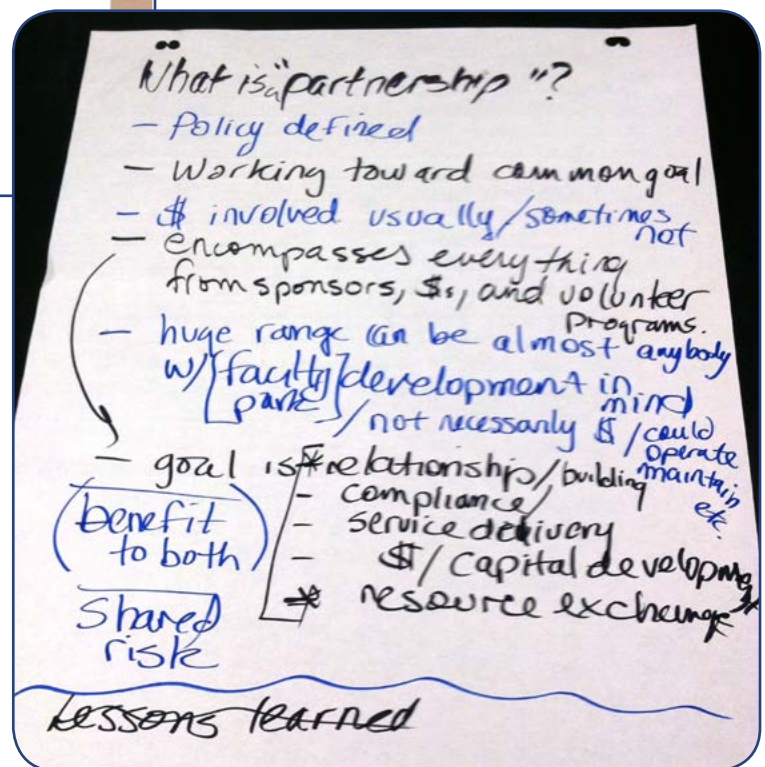 What is a "partnership"?
- Policy defined
- Working toward common goal
- $ involved usually/sometimes
not
- encompasses everything
from sponsors, $s, and volunteer
programs.
- huge range can be almost anybody
w/ [faculty park] development in
mind
/not necessarily $ /could
operate
maintain
etc.
- goal is * relationship/building
- compliance/
- service delivery
- $/capital development
* resource exchange *
(benefit
to both)
Shared
risk
Lessons learned